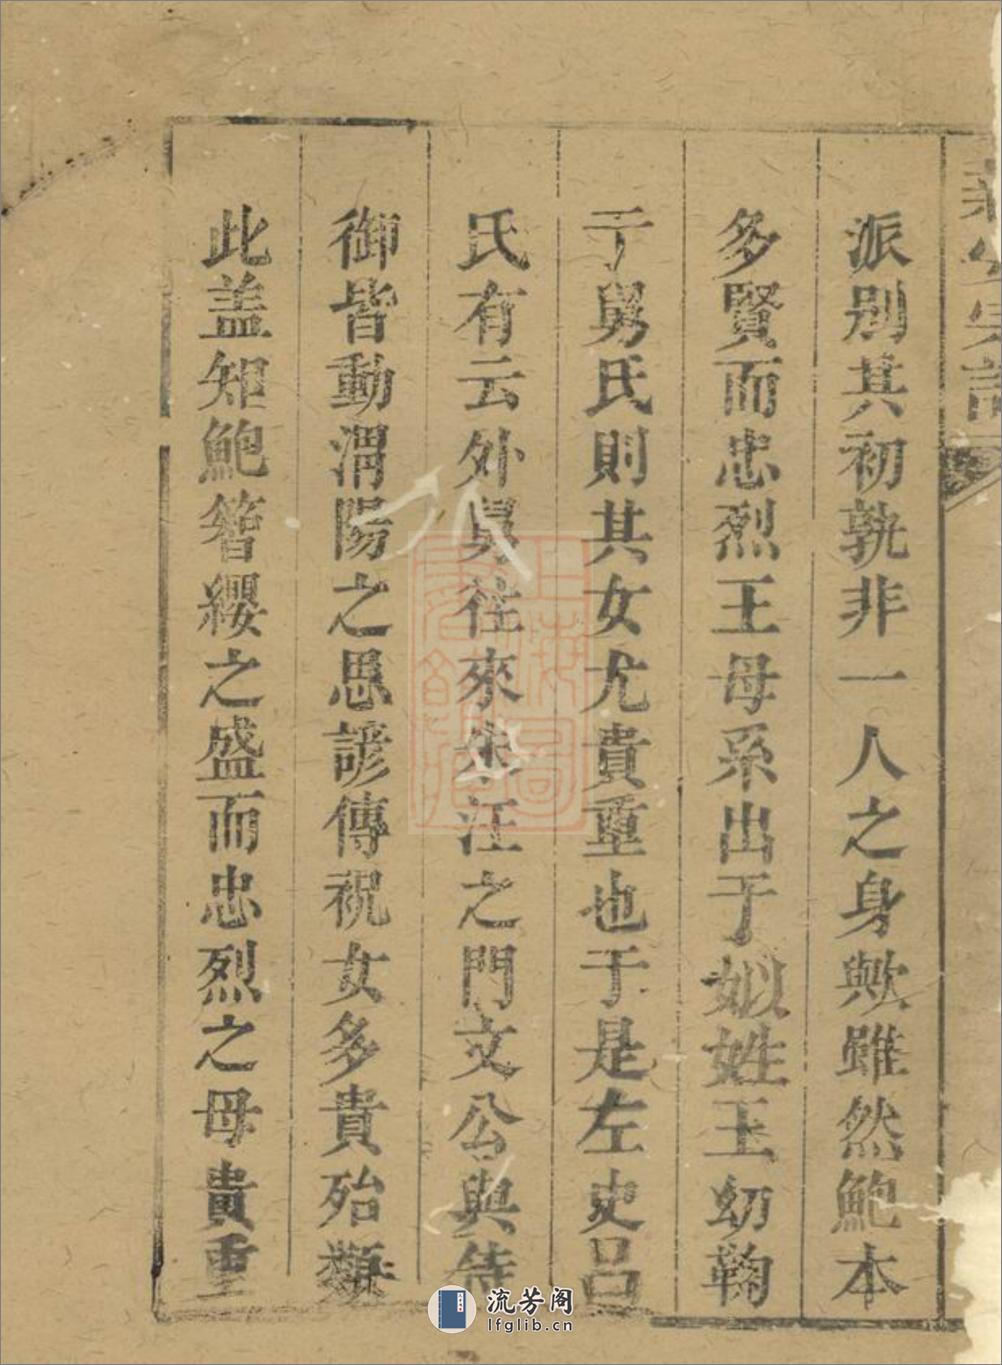 派別其初孰非一人之身歟雖然鮑本
多賢而忠烈王母系出于姒姓王幼鞠
于舅氏則其女尤貴重也于是左史呂
氏有云外舅往來朱汪之門文公與侍
御皆動渭陽之思諺傳祝女多貴殆類
此盖知鮑簪纓之盛而忠烈之母貴重
流芳阁
lfglib.cn